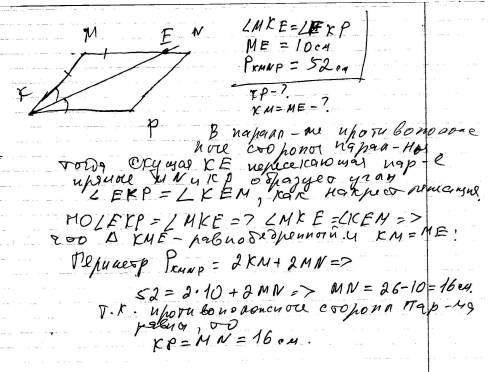 M E N
K P
∠MKE = ∠EKP
ME = 10 см
P KMNP = 52 см
KP - ?
KM = ME - ?
В парал-ме противополож
ные стороны парал-ны
тогда секущая KE пересекающая пар-е
прямые MN и KP образует углы
∠EKP = ∠KEM, как накрест лежащие.
но ∠EKP = ∠MKE => ∠MKE = ∠KEM =>
что △ KME - равнобедренный и KM = ME.
Периметр P KMNP = 2KM + 2MN =>
52 = 2·10 + 2MN => MN = 26-10 = 16 см.
Т.к. противоположные стороны пар-ма
равны, то
KP = MN = 16 см.